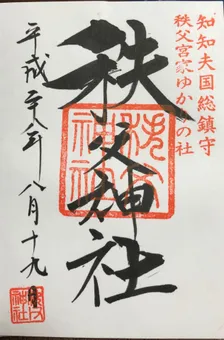 知知夫国総鎮守
秩父宮家ゆかりの社
秩父神社
平成二十八年八月十九日
秩父神社